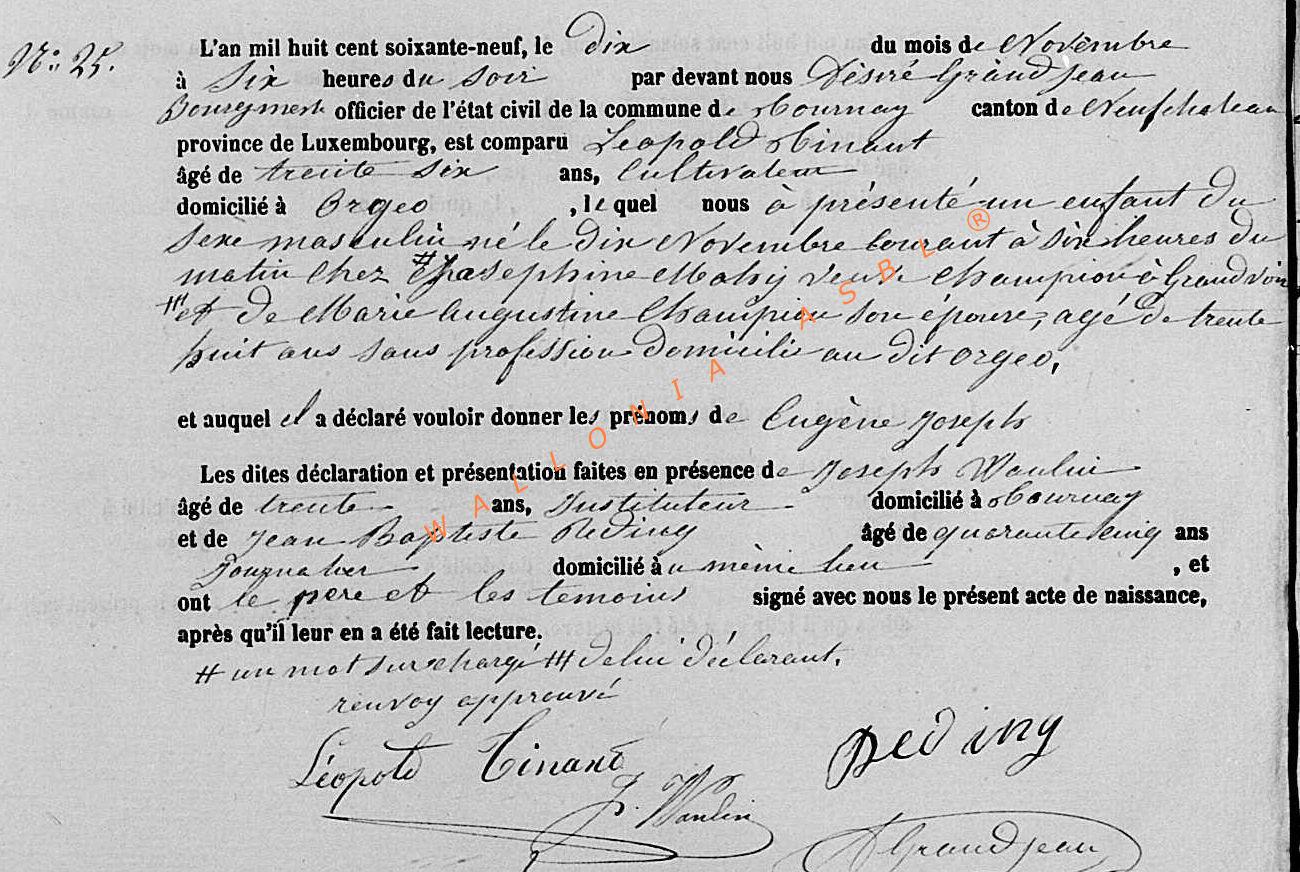 N: 25.
L'an mil huit cent soixante-neuf, le Dix du mois de Novembre
à Six heures du Soir par devant nous Désiré Grandjean
Bourgmestre officier de l'état civil de la commune de Tournay canton de Neufchateau
province de Luxembourg, est comparu Léopold Tinant
âgé de trente Six ans, Cultivateur
domicilié à Orgeo, lequel nous à présenté un enfant du
Sexe masculin né le Dix Novembre Courant à Six heures du
matin Chez # Josephine Mahy veuve Champion à Grandvoir
### et de Marie Augustine Champion Son épouse, agé de trente
huit ans Sans profession Domicilié au dit Orgeo,
et auquel il a déclaré vouloir donner les prénoms de Eugène Joseph
Les dites déclaration et présentation faites en présence de Joseph Waulin
âgé de trente ans, Instituteur domicilié à Tournay
et de Jean Baptiste Reding âgé de quarante cinq ans
Journalier domicilié au même lieu, et
ont le père et les temoins signé avec nous le présent acte de naissance,
après qu'il leur en a été fait lecture.
# un mot surchargé ### de lui déclarant,
renvoy approuvé
Léopold Tinant Reding
J. Waulin
Grandjean
WALLONIA ASBL ®